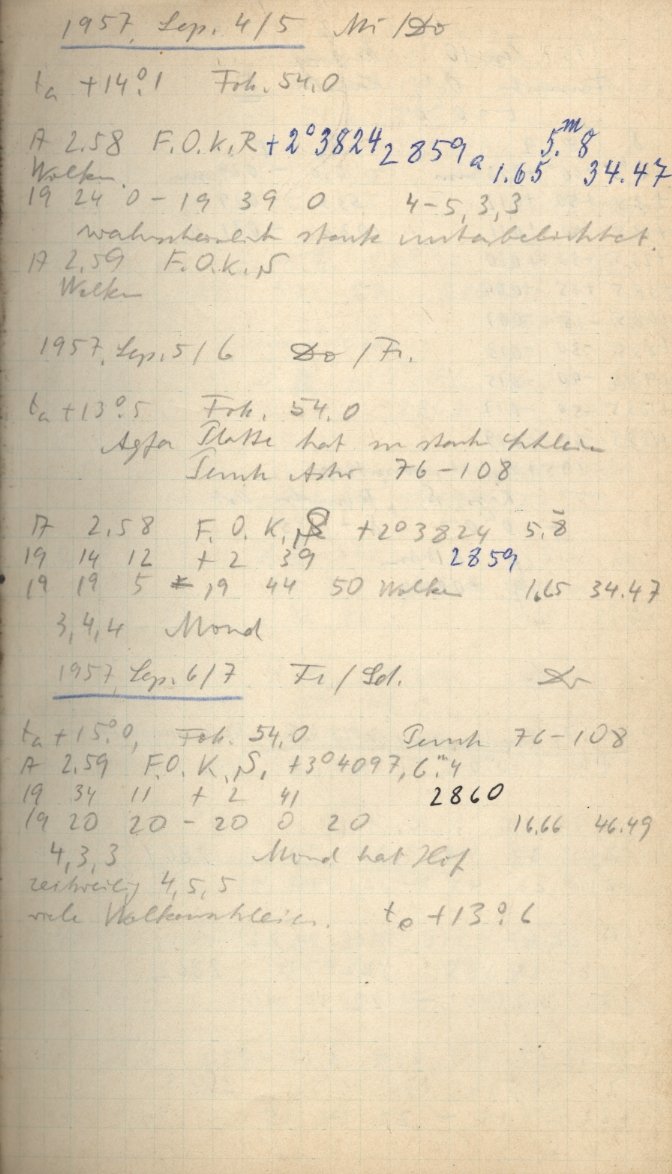 1957, Sep. 4/5 Mi/Do
ta +14°.1 Fok. 54.0
A 2.58 F.O.K,R +2°3824 2859a 5.m8
Wolken. 1.65 34.47
19 24 0 – 19 39 0 4–5,3,3
wahrscheinlich stark unterbelichtet.
A 2.59 F.O.K,S
Wolken
1957, Sep. 5/6 Do/Fr.
ta +13°.5 Fok. 54.0
Agfa Platte hat zu stark
76–108
A 2.58 F.O.K, +2°3824 5.m8
19 14 12 +2 39 2859
19 19 5 – 19 44 50 Wolken 1.65 34.47
3,4,4 Mond
1957, Sep. 6/7 Fr/Sa. Dr
ta +15°.0, Fok. 54.0 76–108
A 2.59 F.O.K,S, +3°4097, 6.m4
19 34 11 +2 41 2860
19 20 20 – 20 0 20 16.66 46.49
4,3,3 Mond hat Hof
zeitweilig 4,5,5
viele Wolkenschleier. te +13°.6